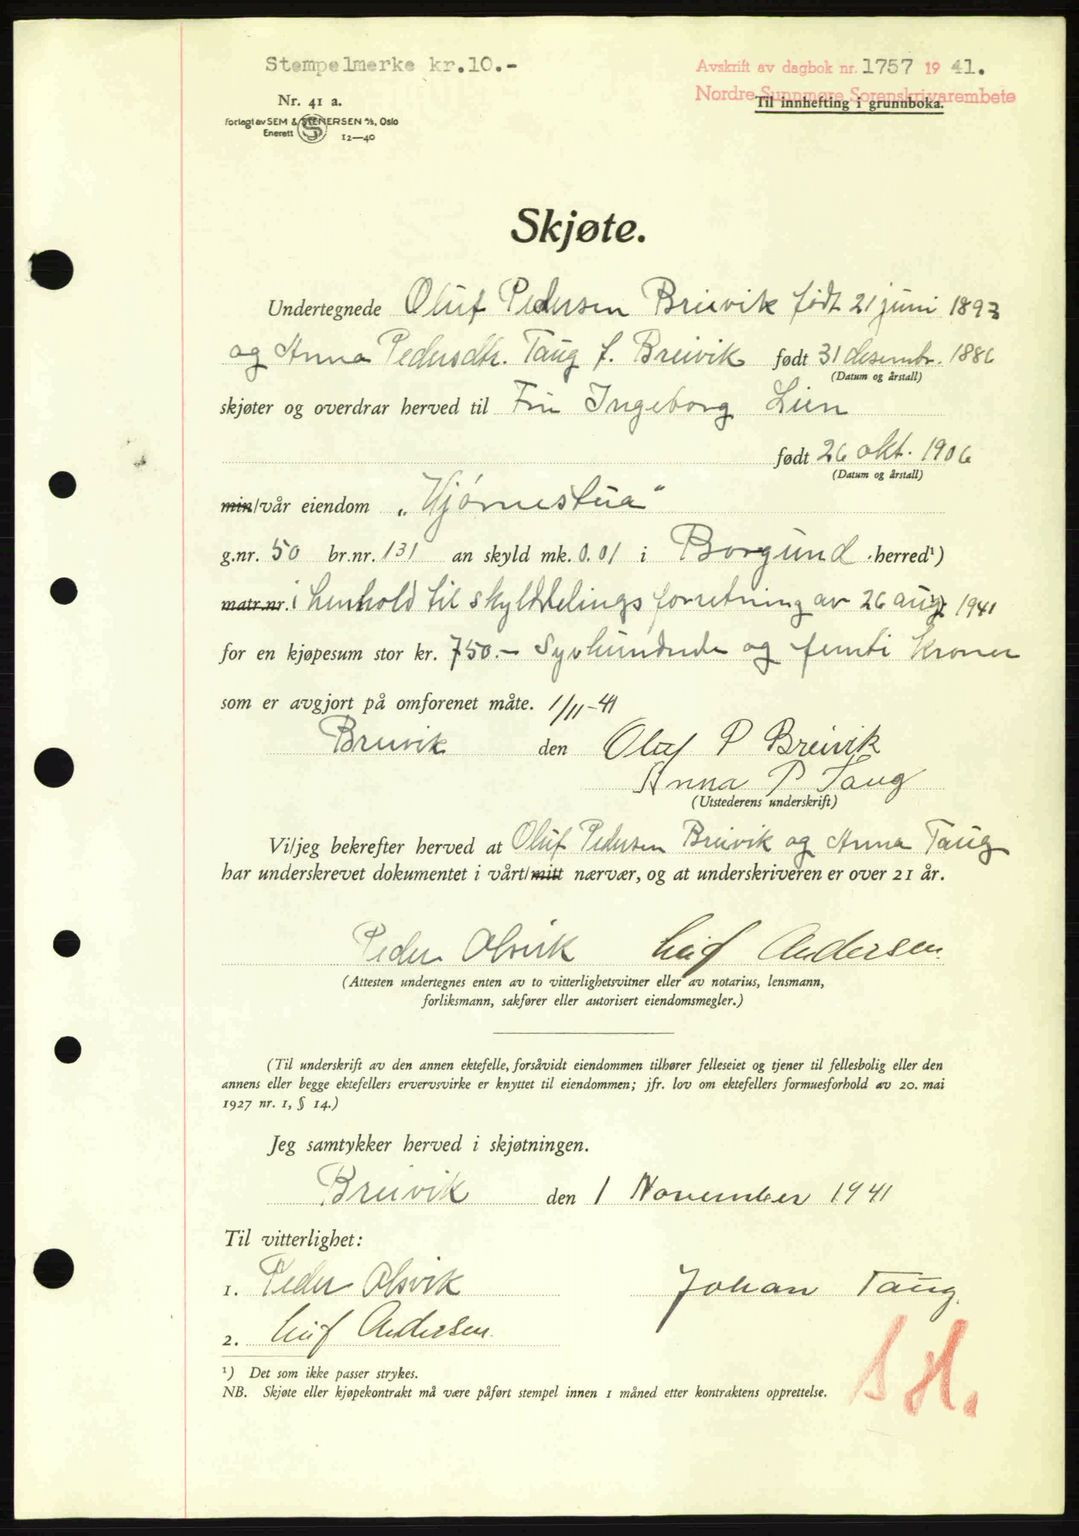 Stempelmerke kr.10.-
Avskrift av dagbok nr. 1757 1941.
Nordre Sunnmøre Sorenskrivarembete
Til innhefting i grunnboka.
Nr. 41 a.
Forlagt av SEM & STENERSEN A/S, Oslo
Enerett S 12—40
Skjøte.
Undertegnede Oluf Pedersen Breivik født 21 juni 1893
og Anna Pedersdtr. Taug f. Breivik født 31 desembr. 1886
(Datum og årstall)
skjøter og overdrar herved til Fru Ingeborg Lien
født 26 okt. 1906
(Datum og årstall)
min/vår eiendom „Hjørnestua"
g.nr. 50 br.nr. 131 an skyld mk. 0.01 i Borgund herred¹)
matr.nr. i henhold til skylddelingsforretning av 26 aug. 1941
for en kjøpesum stor kr. 750.- Syvhundrede og femti Kroner
som er avgjort på omforenet måte. 1/11-41
Breivik den Oluf P Breivik
Anna P Taug
(Utstederens underskrift)
Vi/jeg bekrefter herved at Oluf Pedersen Breivik og Anna Taug
har underskrevet dokumentet i vårt/mitt nærvær, og at underskriveren er over 21 år.
Peder Olsvik Leif Andersen
(Attesten undertegnes enten av to vitterlighetsvitner eller av notarius, lensmann,
forliksmann, sakfører eller autorisert eiendomsmegler.)
(Til underskrift av den annen ektefelle, forsåvidt eiendommen tilhører felleseiet og tjener til fellesbolig eller den
annens eller begge ektefellers ervervsvirke er knyttet til eiendommen; jfr. lov om ektefellers formuesforhold av 20. mai
1927 nr. 1, § 14.)
Jeg samtykker herved i skjøtningen.
Breivik den 1 November 1941
Til vitterlighet:
1. Peder Olsvik Johan Taug.
2. Leif Andersen.
¹) Det som ikke passer strykes.
NB. Skjøte eller kjøpekontrakt må være påført stempel innen 1 måned etter kontraktens opprettelse.